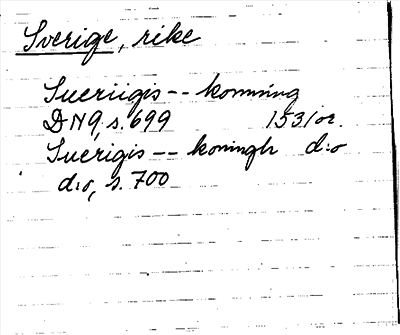 Sverige, rike
Sueriigis -- konning
DN 9, s. 699 1531 or.
Suerigis -- koningh d:o
d:o, s. 700